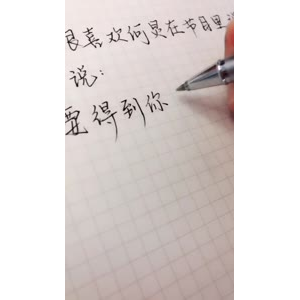 很喜欢何炅在节目里
说：
要得到你